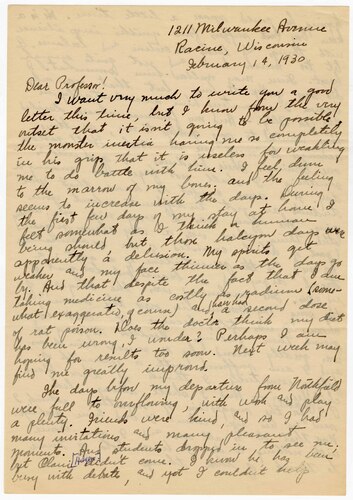 1211 Milwaukee Avenue
Racine, Wisconsin
February 14, 1930
Dear Professor!
I want very much to write you a good
letter this time, but I know from the very
outset that it isn't going to be possible,
the monster inertia having me so completely
in his grip that it is useless for weakling
me to do battle with him. I feel dumb
to the marrow of my bones, and the feeling
seems to increase with the days. During
the first few days of my stay at home I
felt somewhat as I think a human
being should but those halcyon days were
apparently a delusion. My spirits get
weaker and my face thinner as the days go
by. And that despite the fact that I am
taking medicine as costly as radium (some-
what exaggerated, of course) and as harsh as a second dose
of rat poison. Does the doctor think my diet
has been wrong, I wonder? Perhaps I am
hoping for results too soon. Next week may
find me greatly improved.
The days before my departure from Northfield
were full to overflowing, with work and play
a plenty. Friends were kind, and so I had
many invitations, and many pleasant
moments. students dropped in to see me;
yet didn't come. I know he has been
busy with debate, and yet I couldn't help